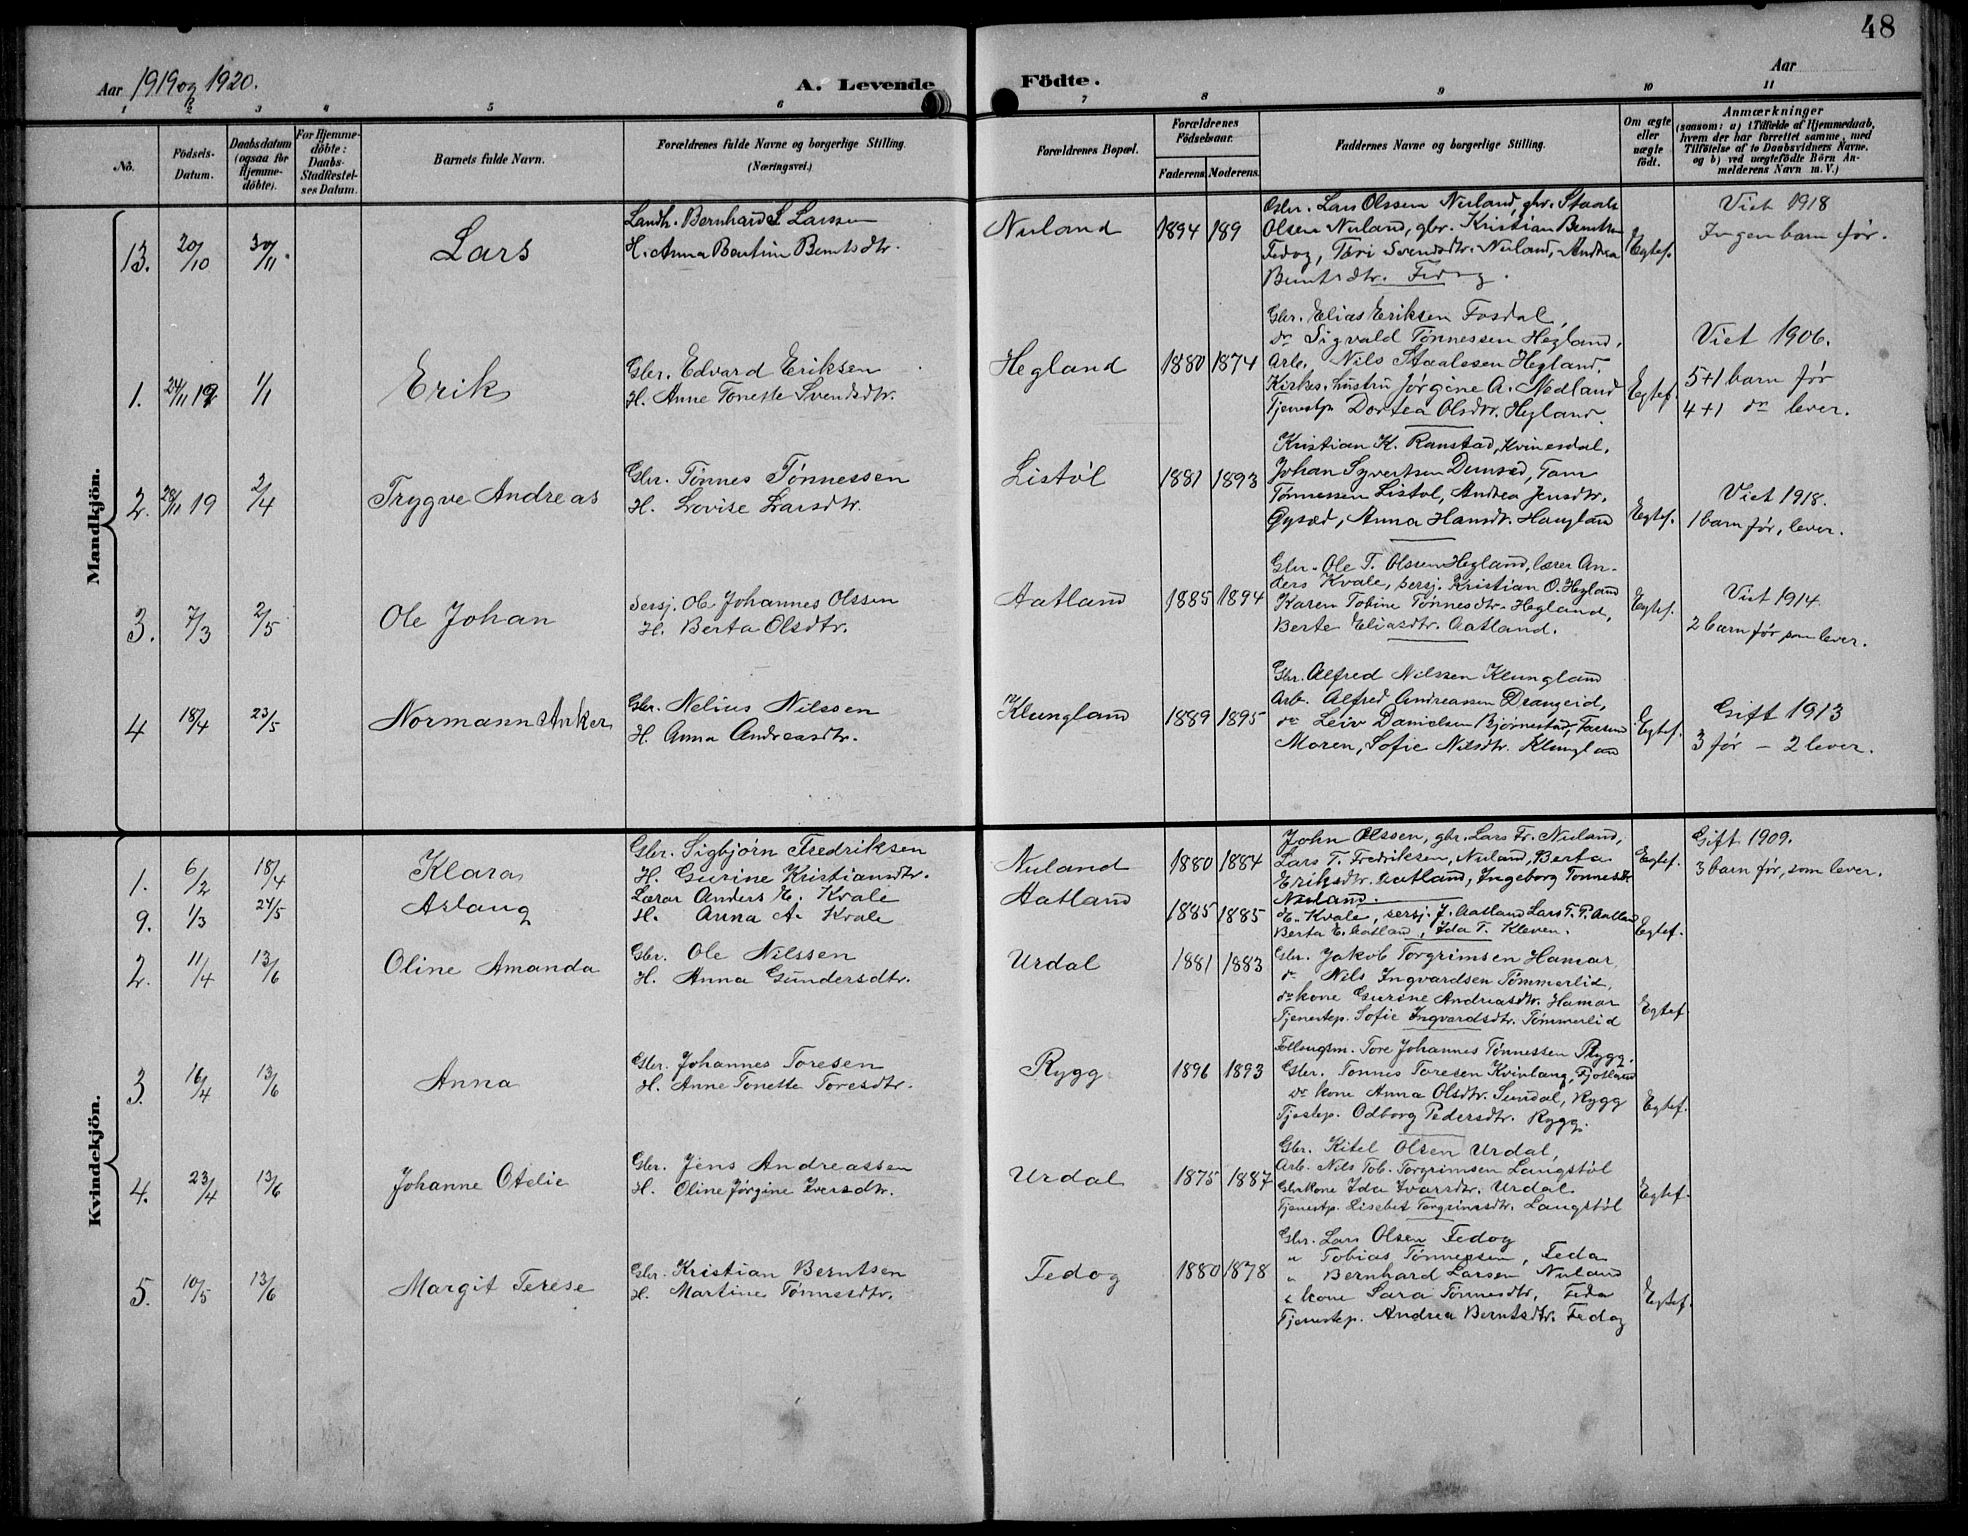 48
Aar 1919 og 1920.
A. Levende Födte.
Aar
1 2 3 4 5 6 7 8 9 10 11
No.
Födsels-Datum.
Daabsdatum (ogsaa for Hjemme-döbte).
For Hjemme-döbte: Daabs-Stadfæstel-ses Datum.
Barnets fulde Navn.
Forældrenes fulde Navne og borgerlige Stilling. (Næringsvei.)
Forældrenes Bopæl.
Forældrenes Födselsaar.
Faderens. Moderens.
Faddernes Navne og borgerlige Stilling.
Om ægte eller uægte födt.
Anmærkninger
(saasom: a) i Tilfælde af Hjemmedaab, hvem der har forrettet samme, med Tilföielse af to Daabsvidners Navne, og b) ved uægtefödte Börn An-melderens Navn m. V.)
Mandkjön.
13. 20/10 30/11 Lars
Landh. Bernhard L Larssen
H. Anna Bentine Berntsdtr.
Nuland 1894 189
Gbr. Lars Olssen Nuland, gbr. Staale
Olsen Nuland, gbr. Kristian Berntsen
Fedog, Tori Svendsdtr. Nuland, Andrea
Berntsdtr. Fedog.
Egtef.
Viet 1918
Ingen barn før.
1. 24/11 19 1/1 Erik
Gbr. Edvard Eriksen
H. Anne Tonette Svendsdtr.
Hegland 1880 1874
Gbr. Elias Eriksen Fosdal,
do Sigvald Tønnessen Hegland,
Arb. Nils Staalesen Hegland.
Kirkes. hustru Jørgine A. Nedland
Tjenestp. Dortea Olsdtr. Hegland.
Egtef.
Viet 1906.
5+1 barn før
4+1 do lever.
2. 28/11 19 2/4 Trygve Andreas
Gbr. Tønnes Tønnessen
H. Lovise Larsdtr.
Listøl 1881 1893
Kristian K. Ranstad, Kvinesdal,
Johan Syvertsen, Tom
Tønnessen Listøl, Andrea Jensdtr.
Gysæd, Anna Hansdtr. Haugland
Egtef.
Viet 1918.
1 barn før, lever.
3. 7/3 2/5 Ole Johan
Sersj. Ole Johannes Olssen
H. Berta Olsdtr.
Aatland 1885 1894
Gbr. Ole T. Olssen Hegland, lærer An-
ders Kvale, sersj. Kristian O. Hegland
Karen Tobine Tønnesdtr. Hegland,
Berte Eliasdtr. Aatland.
Egtef.
Viet 1914.
2 barn før som lever.
4 18/4 23/5 Normann Anker
Gbr. Nelius Nilssen
H. Anna Andreasdtr.
Klungland 1889 1895
Gbr. Alfred Nilssen Klungland
Arb. Alfred Andreassen Drangeid,
do Leiv Danielsen Bjørnestad,
Moren, Sofie Nilsdtr. Klungland
Egtef.
Gift 1913
3 før – 2 lever.
Kvindekjön.
1. 6/2 18/4 Klara
Gbr. Sigbjørn Fredriksen
H. Gurine Kristiansdtr.
Nuland 1880 1884
John Olssen, gbr. Lars Fr. Nuland,
Lars T. Fredriksen, Nuland, Berta
Eriksdtr. Aatland, Ingeborg Tønnesdtr
Nuland.
Egtef.
Gift 1909.
3 barn før, som lever.
9. 1/3 24/5 Aslaug
Lærar Anders E. Kvale
H. Anna A. Kvale
Aatland 1885 1885
E. Kvale, sersj. J. Aatland Lars T. P. Aatland
Berta E. Aatland, Ida T. Kleven.
Egtef.
2. 11/4 13/6 Oline Amanda
Gbr. Ole Nilssen
H. Anna Gundersdtr.
Urdal 1881 1883
Gbr. Jakob Torgrimsen Hamar,
do Nils Ingvardsen Tømmerlid,
do kone Gurine Andreasdtr. Hamar
Tjenestep. Sofie Ingvardsdtr. Tømmerlid
Egtef.
3. 16/4 13/6 Anna
Gbr. Johannes Toresen
H. Anne Tonette Toresdtr.
Rygg 1896 1893
Follaugsm. Tore Johannes Tønnessen Rygg.
Gbr. Tønnes Toresen Kvinlaug, Fjotland
do kone Anna Olsdtr. Sundal, Rygg
Tjestep. Odborg Pedersdtr. Rygg.
Egtef.
4. 23/4 13/6 Johanne Otelie
Gbr. Jens Andreassen
H. Oline Jørgine Iversdtr.
Urdal 1875 1887
Gbr. Kitel Olsen Urdal,
Arb. Nils Tob. Torgrimsen Langstøl
Gbrkone Ida Ivarsdtr. Urdal
Tjenestp. Lisebet Torgrimsdtr. Langstøl
Egtef.
5. 10/5 13/6 Margit Terese
Gbr. Kristian Berntsen
H. Martine Tønnesdtr.
Fedog 1880 1878
Gbr. Lars Olsen Fedog
" Tobias Tønnessen, Feda
" Bernhard Larsen Nuland
" kone Sara Tønnesdtr. Feda
Tjenestep. Andrea Berntsdtr. Fedog
Egtef.